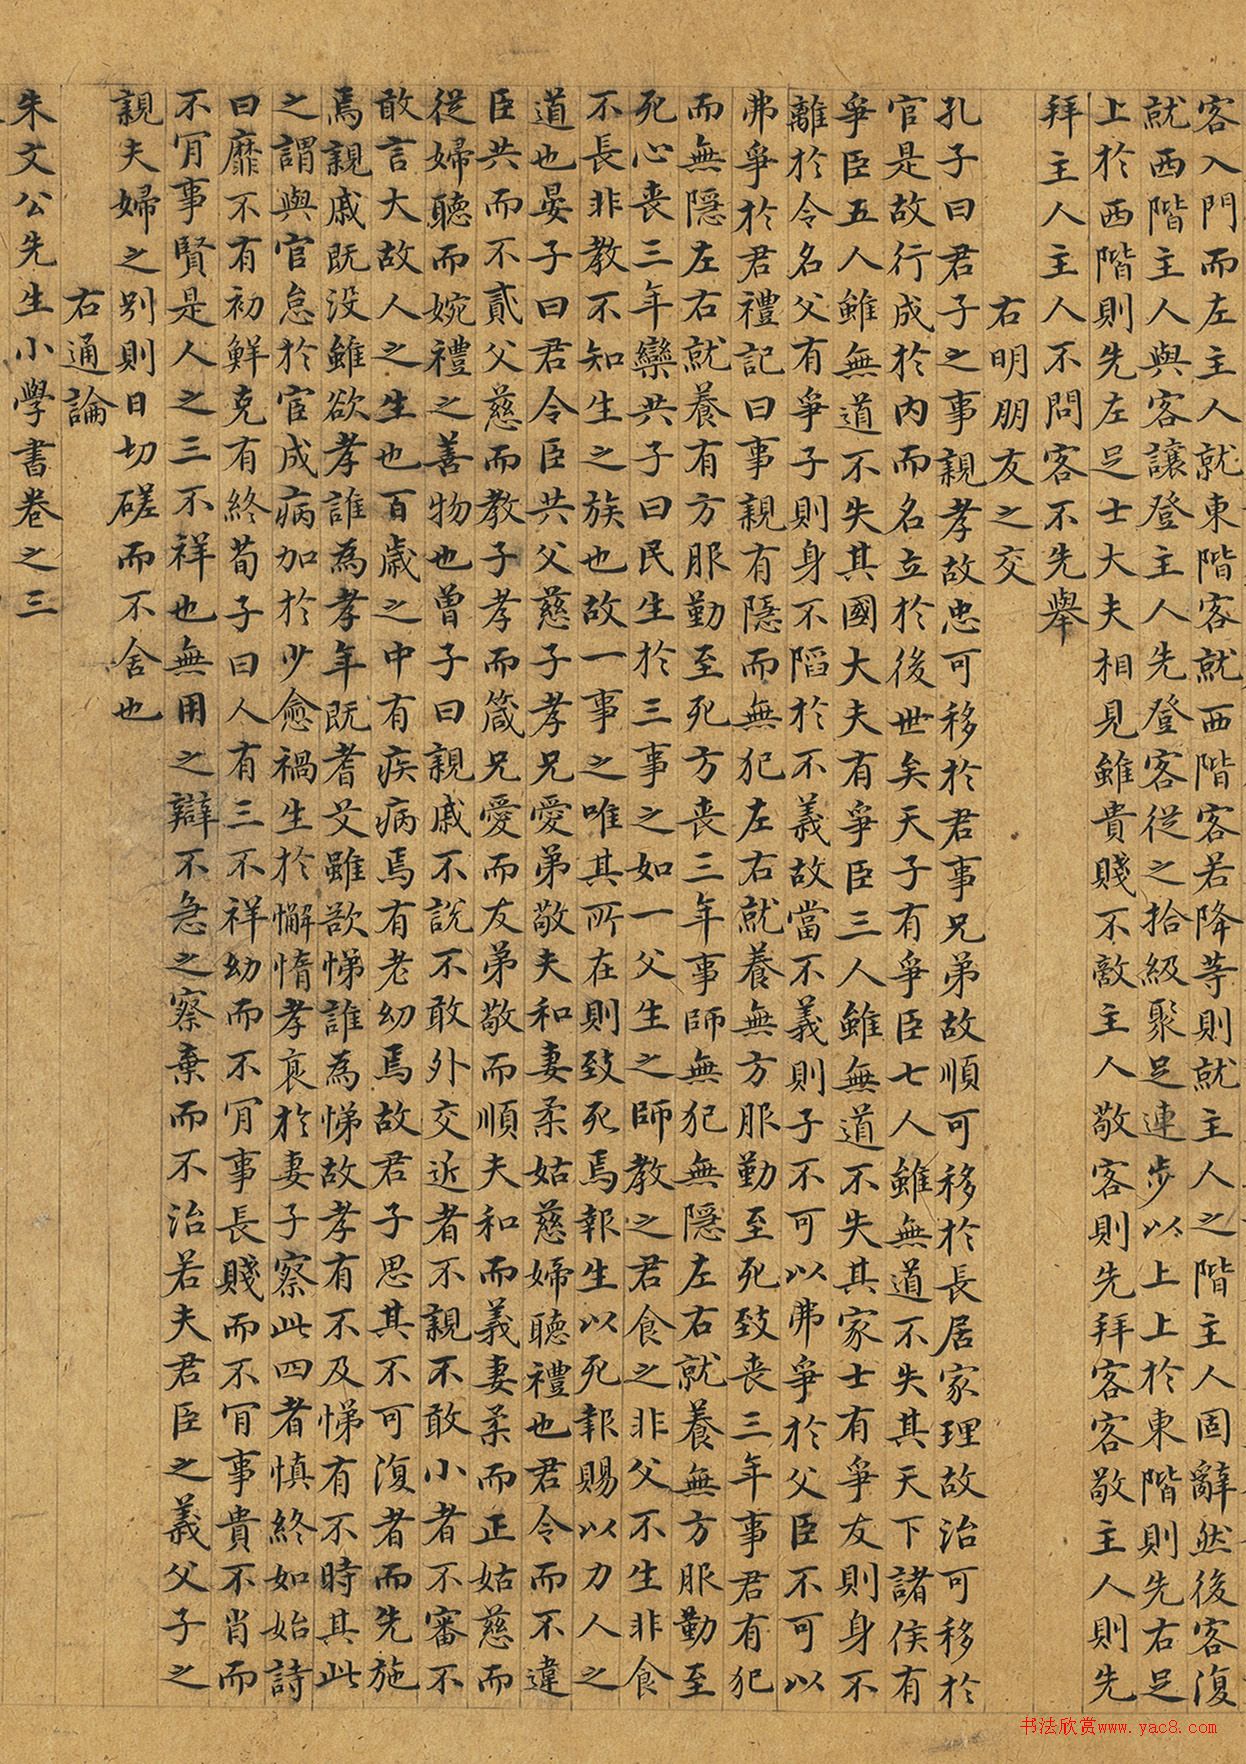 客入門而左主人就東階客就西階客若降等則就主人之階主人固辭然後客復
就西階主人與客讓登主人先登客從之拾級聚足連步以上上於東階則先右足
上於西階則先左足士大夫相見雖貴賤不敵主人敬客則先拜客客敬主人則先
拜主人主人不問客不先舉
右明朋友之交
孔子曰君子之事親孝故忠可移於君事兄弟故順可移於長居家理故治可移於
官是故行成於內而名立於後世矣天子有爭臣七人雖無道不失其天下諸侯有
爭臣五人雖無道不失其國大夫有爭臣三人雖無道不失其家士有爭友則身不
離於令名父有爭子則身不陷於不義故當不義則子不可以弗爭於父臣不可以
弗爭於君禮記曰事親有隱而無犯左右就養無方服勤至死致喪三年事君有犯
而無隱左右就養有方服勤至死方喪三年事師無犯無隱左右就養無方服勤至
死心喪三年欒共子曰民生於三事之如一父生之師教之君食之非父不生非食
不長非教不知生之族也故一事之唯其所在則致死焉報生以死報賜以力人之
道也晏子曰君令臣共父慈子孝兄愛弟敬夫和妻柔姑慈婦聽禮也君令而不違
臣共而不貳父慈而教子孝而箴兄愛而友弟敬而順夫和而義妻柔而正姑慈而
從婦聽而婉禮之善物也曾子曰親戚不說不敢外交近者不親不敢小者不審不
敢言大故人之生也百歲之中有疾病焉有老幼焉故君子思其不可復者而先施
焉親戚既沒雖欲孝誰為孝年既耆艾雖欲悌誰為悌故孝有不及悌有不時其此
之謂與官怠於宦成病加於少愈禍生於懈惰孝衰於妻子察此四者慎終如始詩
曰靡不有初鮮克有終荀子曰人有三不祥幼而不肯事長賤而不肯事貴不肖而
不肯事賢是人之三不祥也無用之辯不急之察棄而不治若夫君臣之義父子之
親夫婦之別則日切磋而不舍也
右通論
朱文公先生小學書卷之三
书法欣赏www.yac8.com